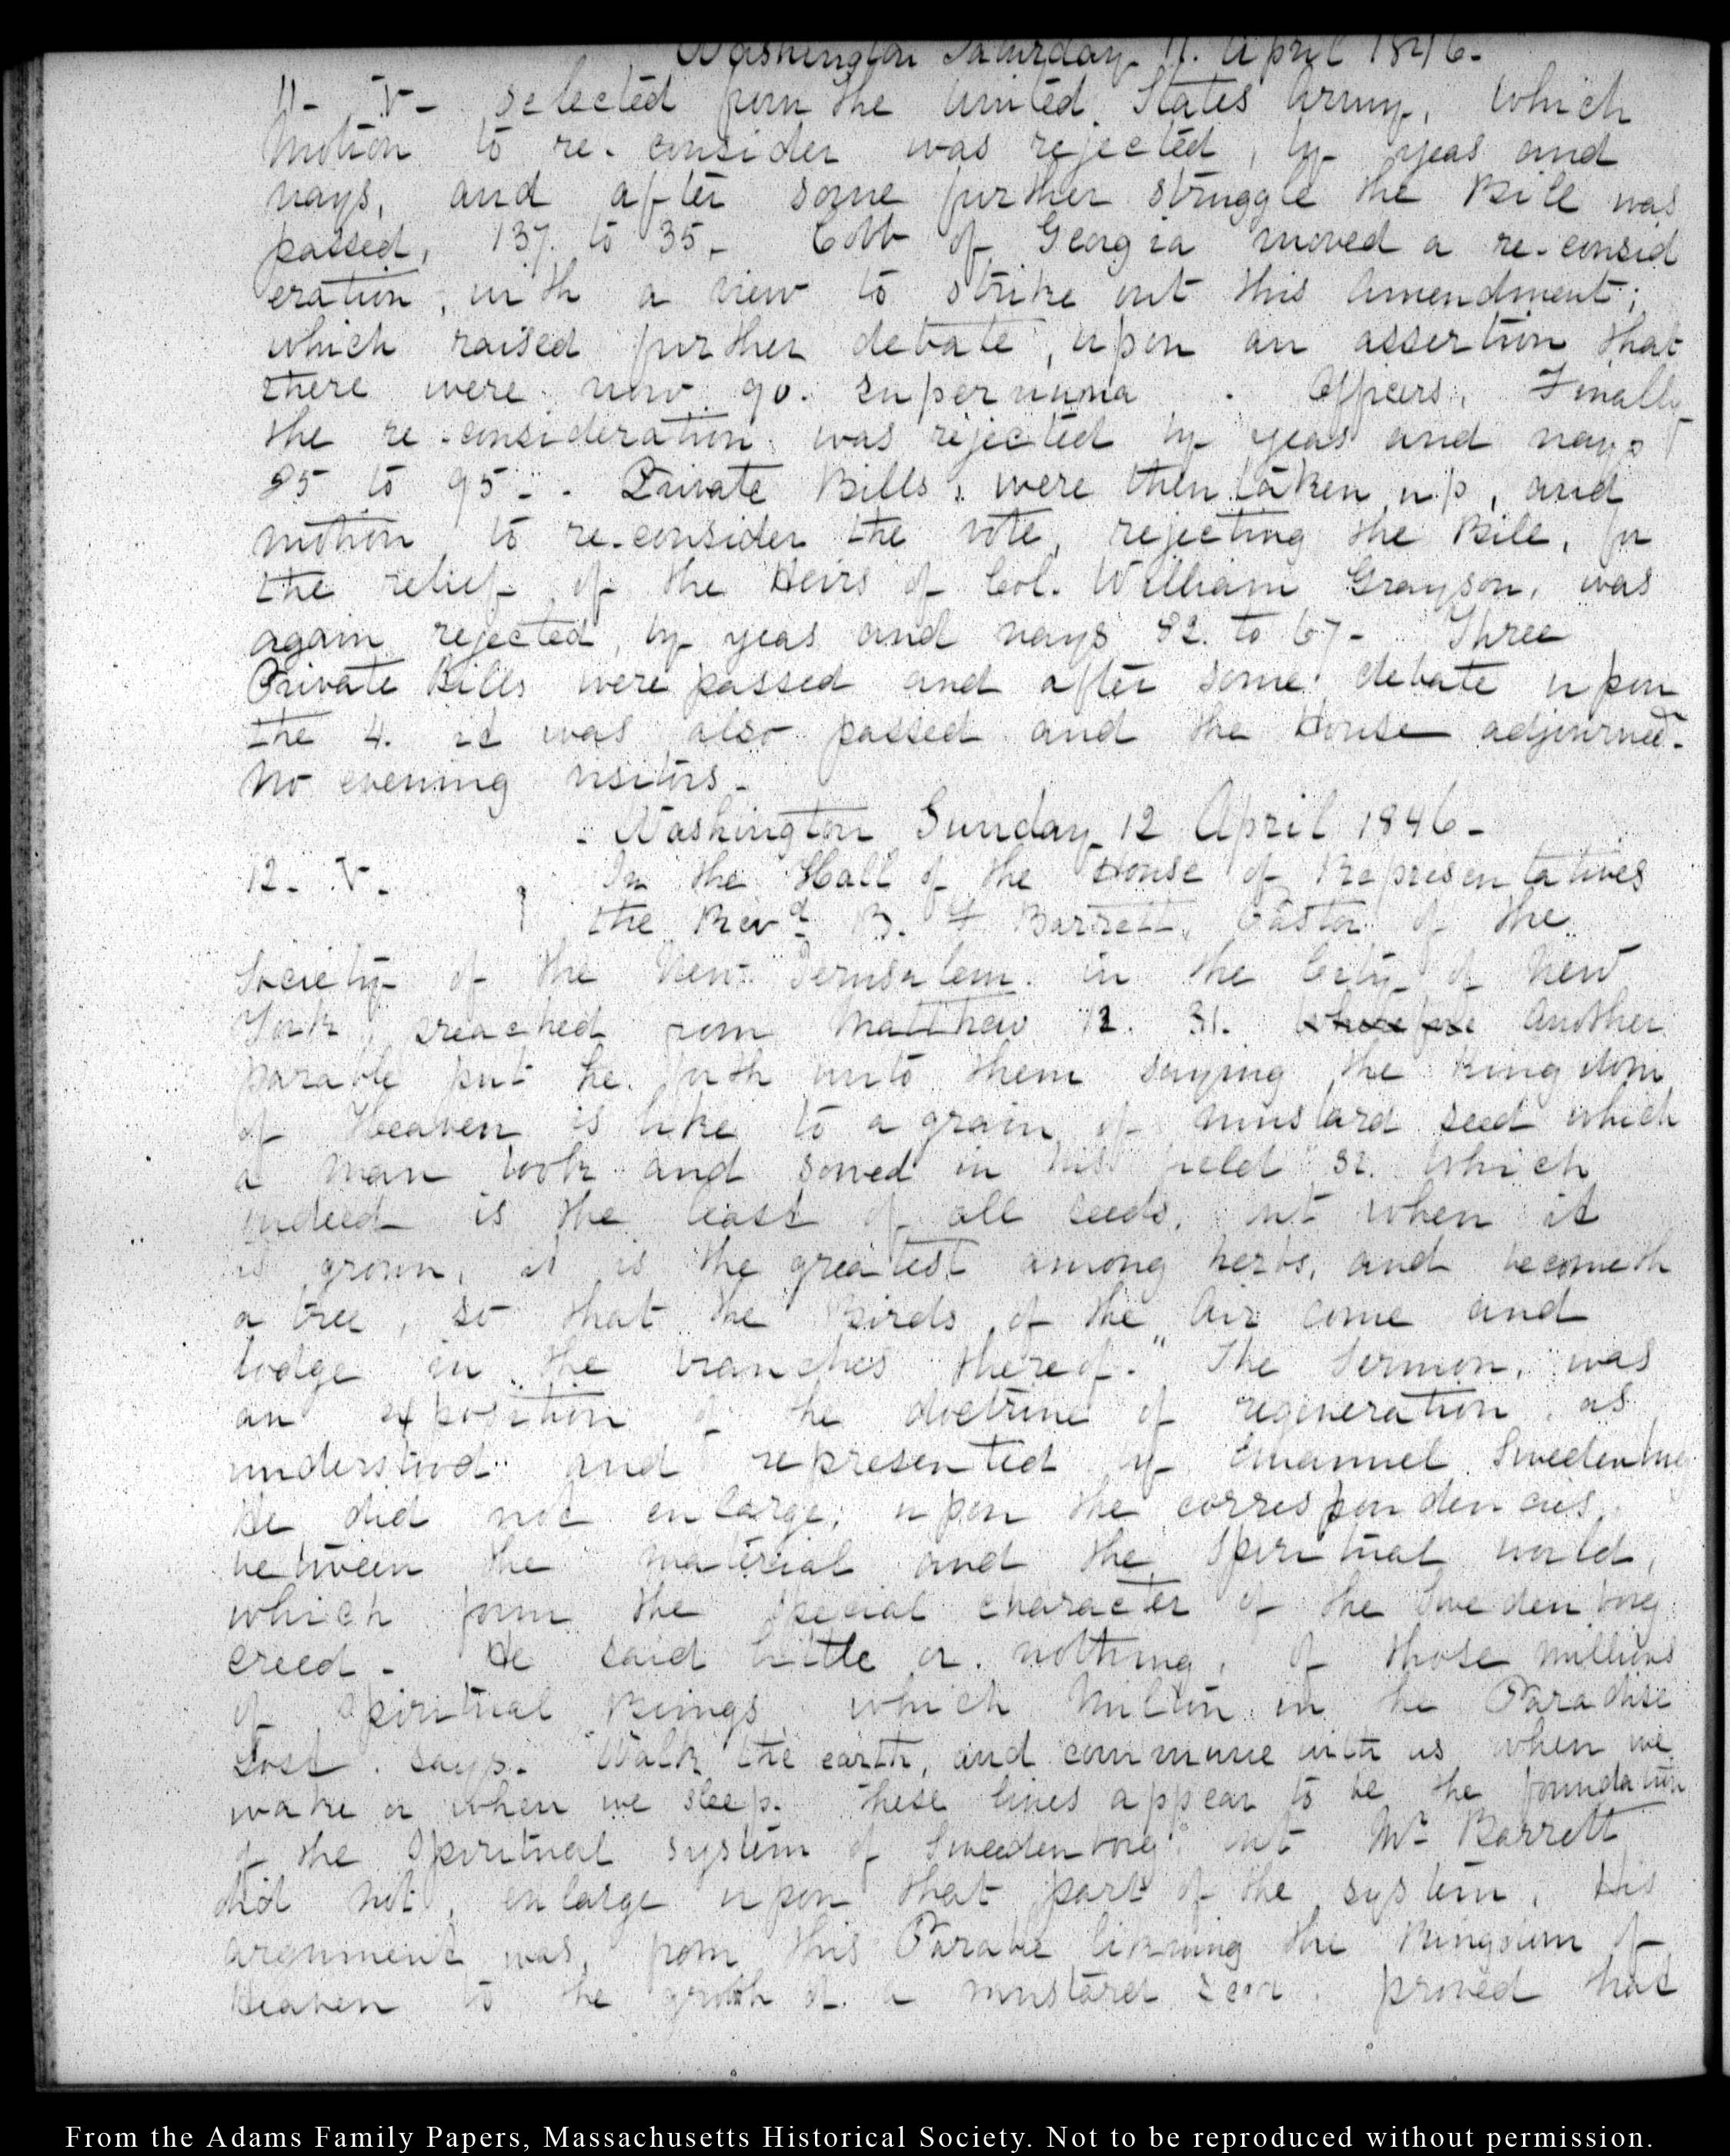 Washington Saturday 11. April 1846-
11- V- selected from the United States Army, which
motion to re-consider was rejected, by yeas and
nays, and after some further struggle the Bill was
passed, 137. to 35- Cobb of Georgia moved a re-consid
eration, with a view to strike out this amendment;
which raised further debate, upon an assertion that
there were now 90. supernuma Officers. Finally
the re-consideration was rejected by yeas and nays
to 95-. Private Bills, were then taken up, and
motion to re-consider the vote, rejecting the Bill, for
the relief of the Heirs of Col. William Grayson, was
again rejected, by yeas and nays to 67- Three
Private Bills were passed and after some debate upon
the 4. it was also passed and the House adjourned-
No evening visitors-
Washington Sunday 12 April 1846-
12- V- In the Hall of the House of Representatives
the Revd. B. F Barrett, Pastor of the
Society of the New Jerusalem in the City of New
York, preached from Matthew 31. Another
parable put he forth unto them saying, the kingdom
of Heaven is like to a grain of mustard seed which
a man took and sowed in his field 32. Which
indeed is the least of all seeds, but when it
is grown, it is the greatest among herbs, and becometh
a tree, so that the Birds of the Air come and
lodge in the branches thereof." The Sermon, was
an exposition of the doctrine of regeneration as
understood and represented by Emanuel Swedenborg
He did not enlarge, upon the correspondencies
between the material and the Spiritual world,
which form the special character of the Swedenborg
creed- He said little or nothing, of those millions
of Spiritual Beings which Milton in the Paradise
Lost. says. "Walk the earth, and commune with us when we
wake or when we sleep. These lines appear to be the foundation
of the Spiritual system of Swedenborg: but Mr. Barrett
did not, enlarge upon that part of the system. His
argument was, from this Parable likening the Kingdom of
Heaven to the growth of a mustard seed. proved that
From the Adams Family Papers, Massachusetts Historical Society. Not to be reproduced without permission.